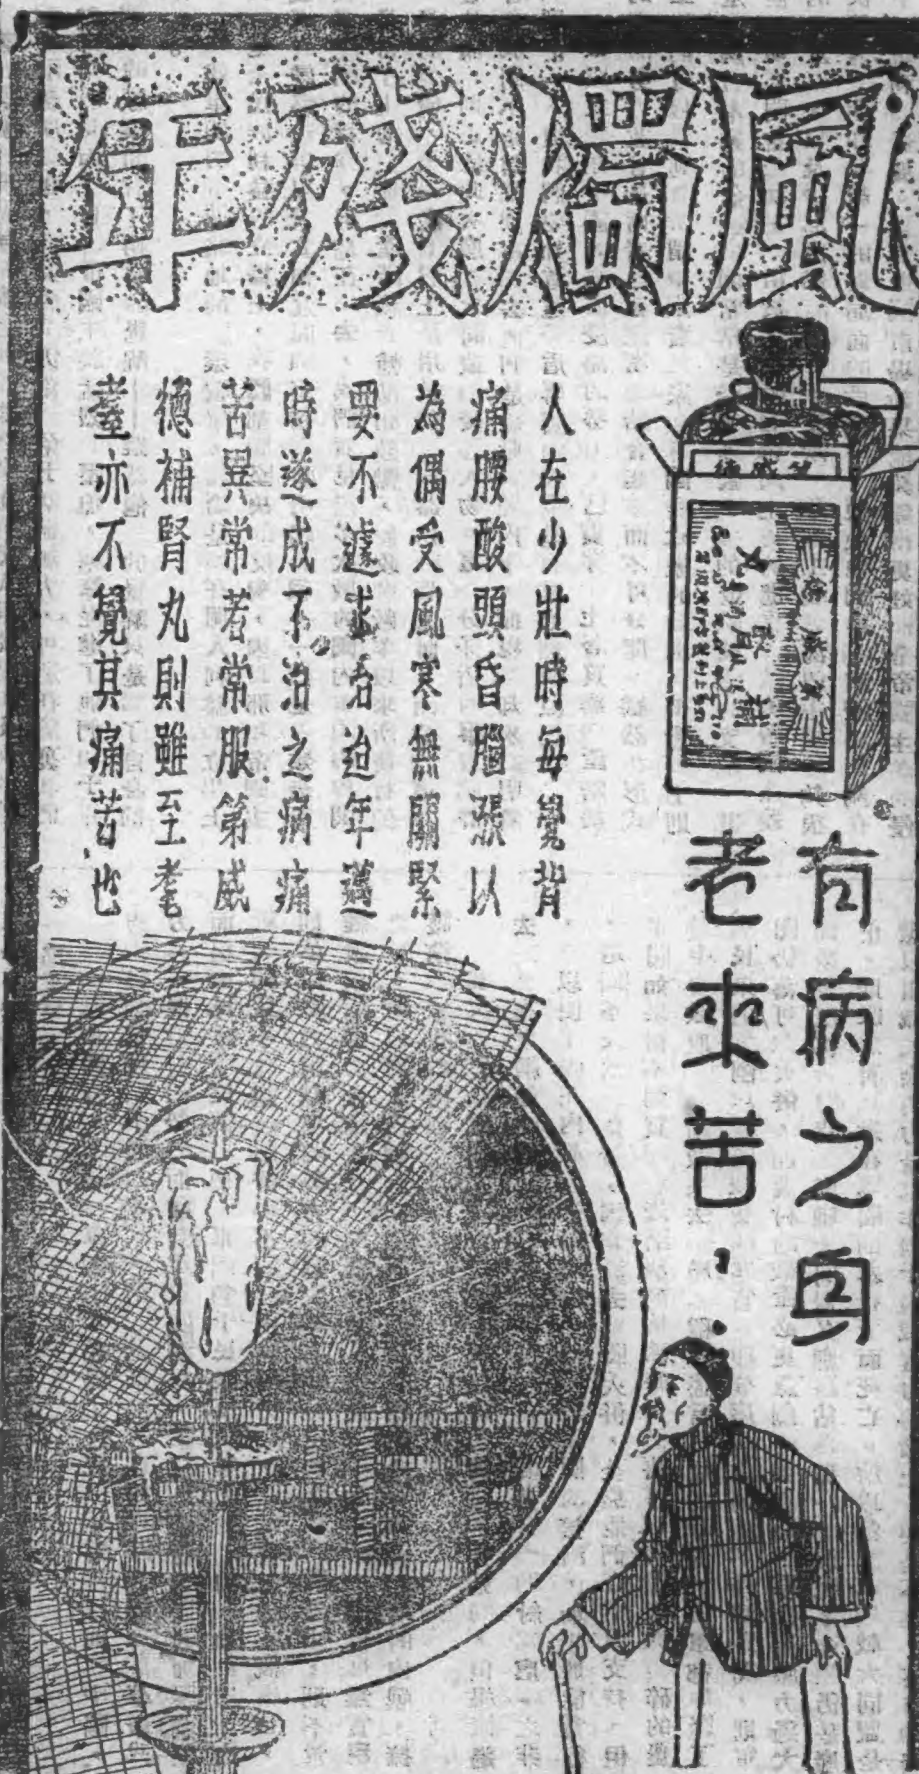 風燭殘年
有病之身
老來苦⋮
人在少壯時每覺背
痛腰酸頭昏腦漲以
為偶受風寒無關緊
要不遽求治迨年邁
時遂成不治之病痛
苦異常若常服第威
德補腎丸則雖至耄
耋亦不覺其痛苦也
第威德
補腎丸